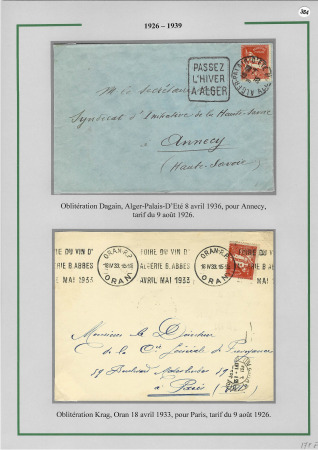 384
1926 - 1939
PASSEZ
L'HIVER
A ALGER
M. le Secrétaire
Syndicat d'Initiative de la Haute-Savoie
Annecy
(Haute-Savoie)
Oblitération Dagain, Alger-Palais-D'Eté 8 avril 1936, pour Annecy,
tarif du 9 août 1926.
FOIRE DU VIN D'
ALGERIE B. ABBES
AVRIL MAI 1933
ORAN R.P.
18 IV 33
ORAN
Monsieur le Directeur
de la Cie Générale de
59 Boulevard 59
à Paris
Oblitération Krag, Oran 18 avril 1933, pour Paris, tarif du 9 août 1926.